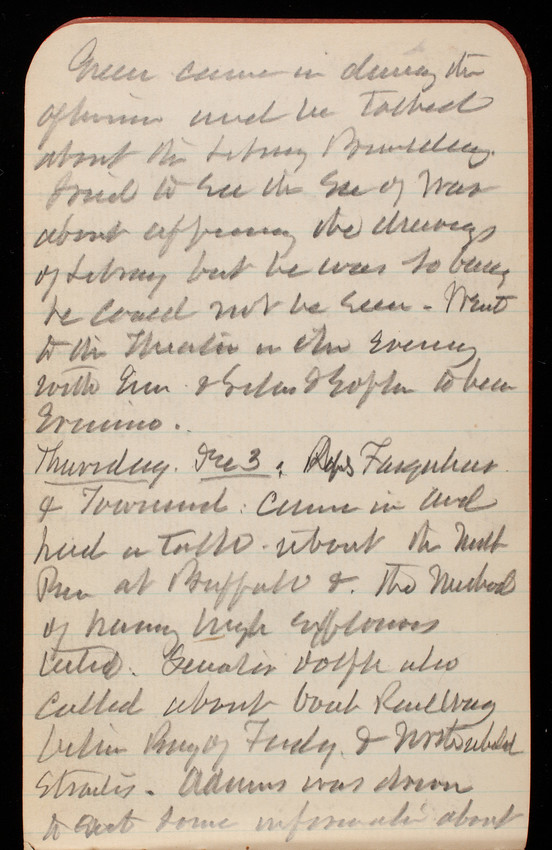 Green came in during the
afternoon and we talked
about the Library Building.
Tried to see the Sec of War
about approving the drawings
of Library but he was so busy
he could not be seen - Went
to the Theater in the Evening
with Em & & Sophie to hear
Erminie.
Thursday. Dec 3. Reps Farquhar
& Townsend. Came in and
had a talk about the
at Buffalo & the method
of having high explosives
tested. Senator Dolph also
called about boat Railway
betw Bay of Fundy & Northumberland
Straits. Adams was down
to get some information about